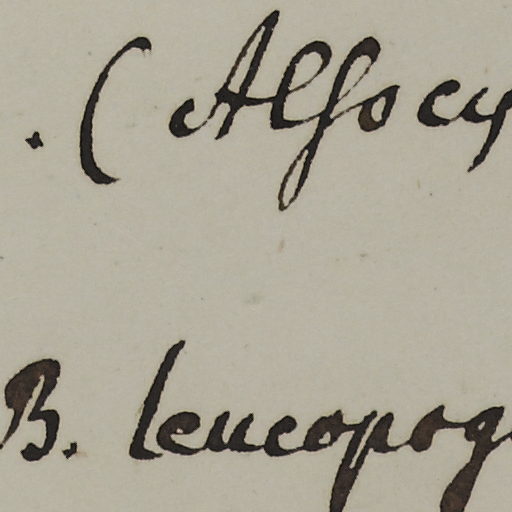 . (Alſocy
B. leucopog